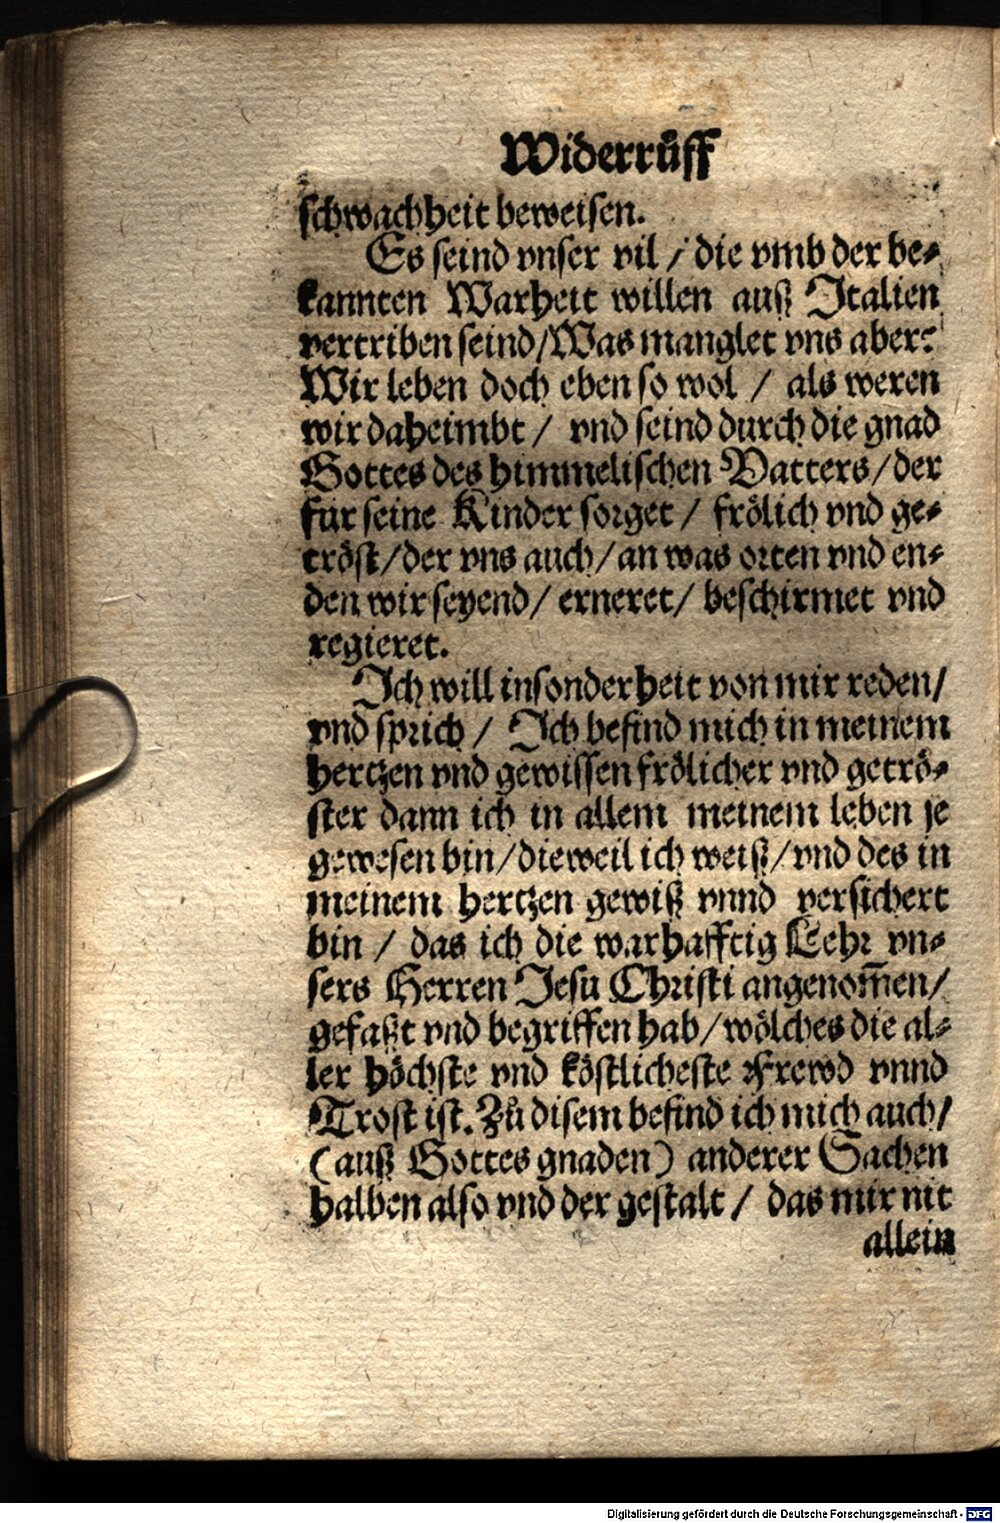 Widerrůff
schwachheit beweisen.
Es seind vnser vil / die vmb der be⸗
kannten Warheit willen auß Italien
vertriben seind/Was manglet vns aber?
Wir leben doch eben so wol / als weren
wir daheimbt / vnd seind durch die gnad
Gottes des himmelischen Vatters/der
fur seine Kinder sorget / frölich vnd ge⸗
tröst/der vns auch/an was orten vnd en⸗
den wir seyend/ erneret/ beschirmet vnd
regieret.
Ich will insonderheit von mir reden/
vnd sprich / Ich befind mich in meinem
hertzen vnd gewissen frölicher vnd getrö⸗
ster dann ich in allem meinem leben je
gewesen bin/dieweil ich weiß/vnd des in
meinem hertzen gewiß vnnd versichert
bin / das ich die warhafftig Lehr vn⸗
sers Herren Jesu Christi angenom̄en/
gefaßt vnd begriffen hab/wölches die al⸗
ler höchste vnd köstlicheste Frewd vnnd
Trost ist. Zů disem befind ich mich auch/
(auß Gottes gnaden) anderer Sachen
halben also vnd der gestalt / das mir nit
allein
Digitalisierung gefördert durch die Deutsche Forschungsgemeinschaft - DFG